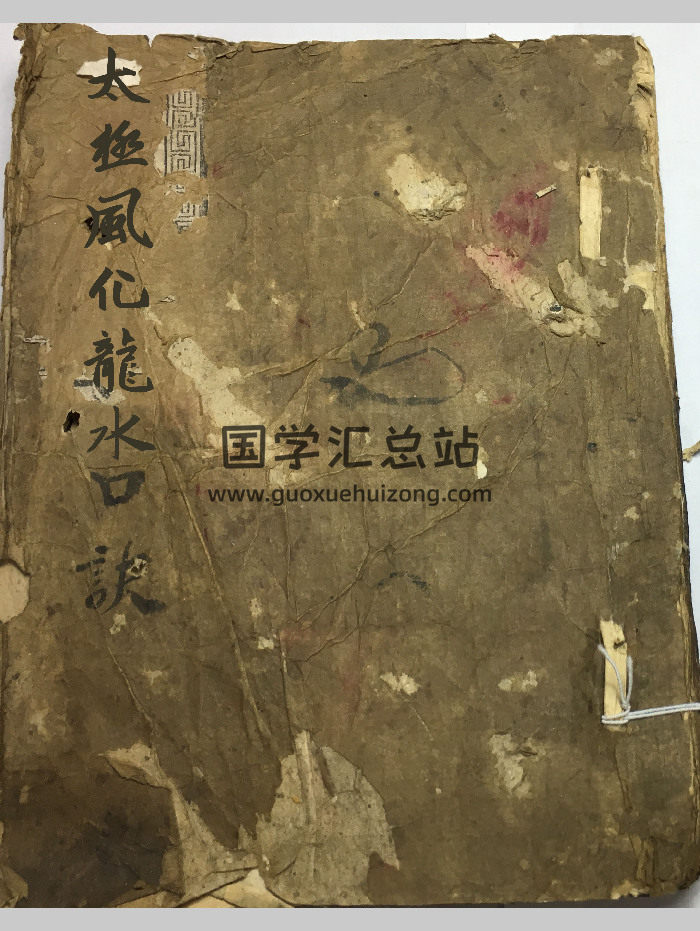 太極風化龍水口訣
国学汇总站
www.guoxuehuizong.com